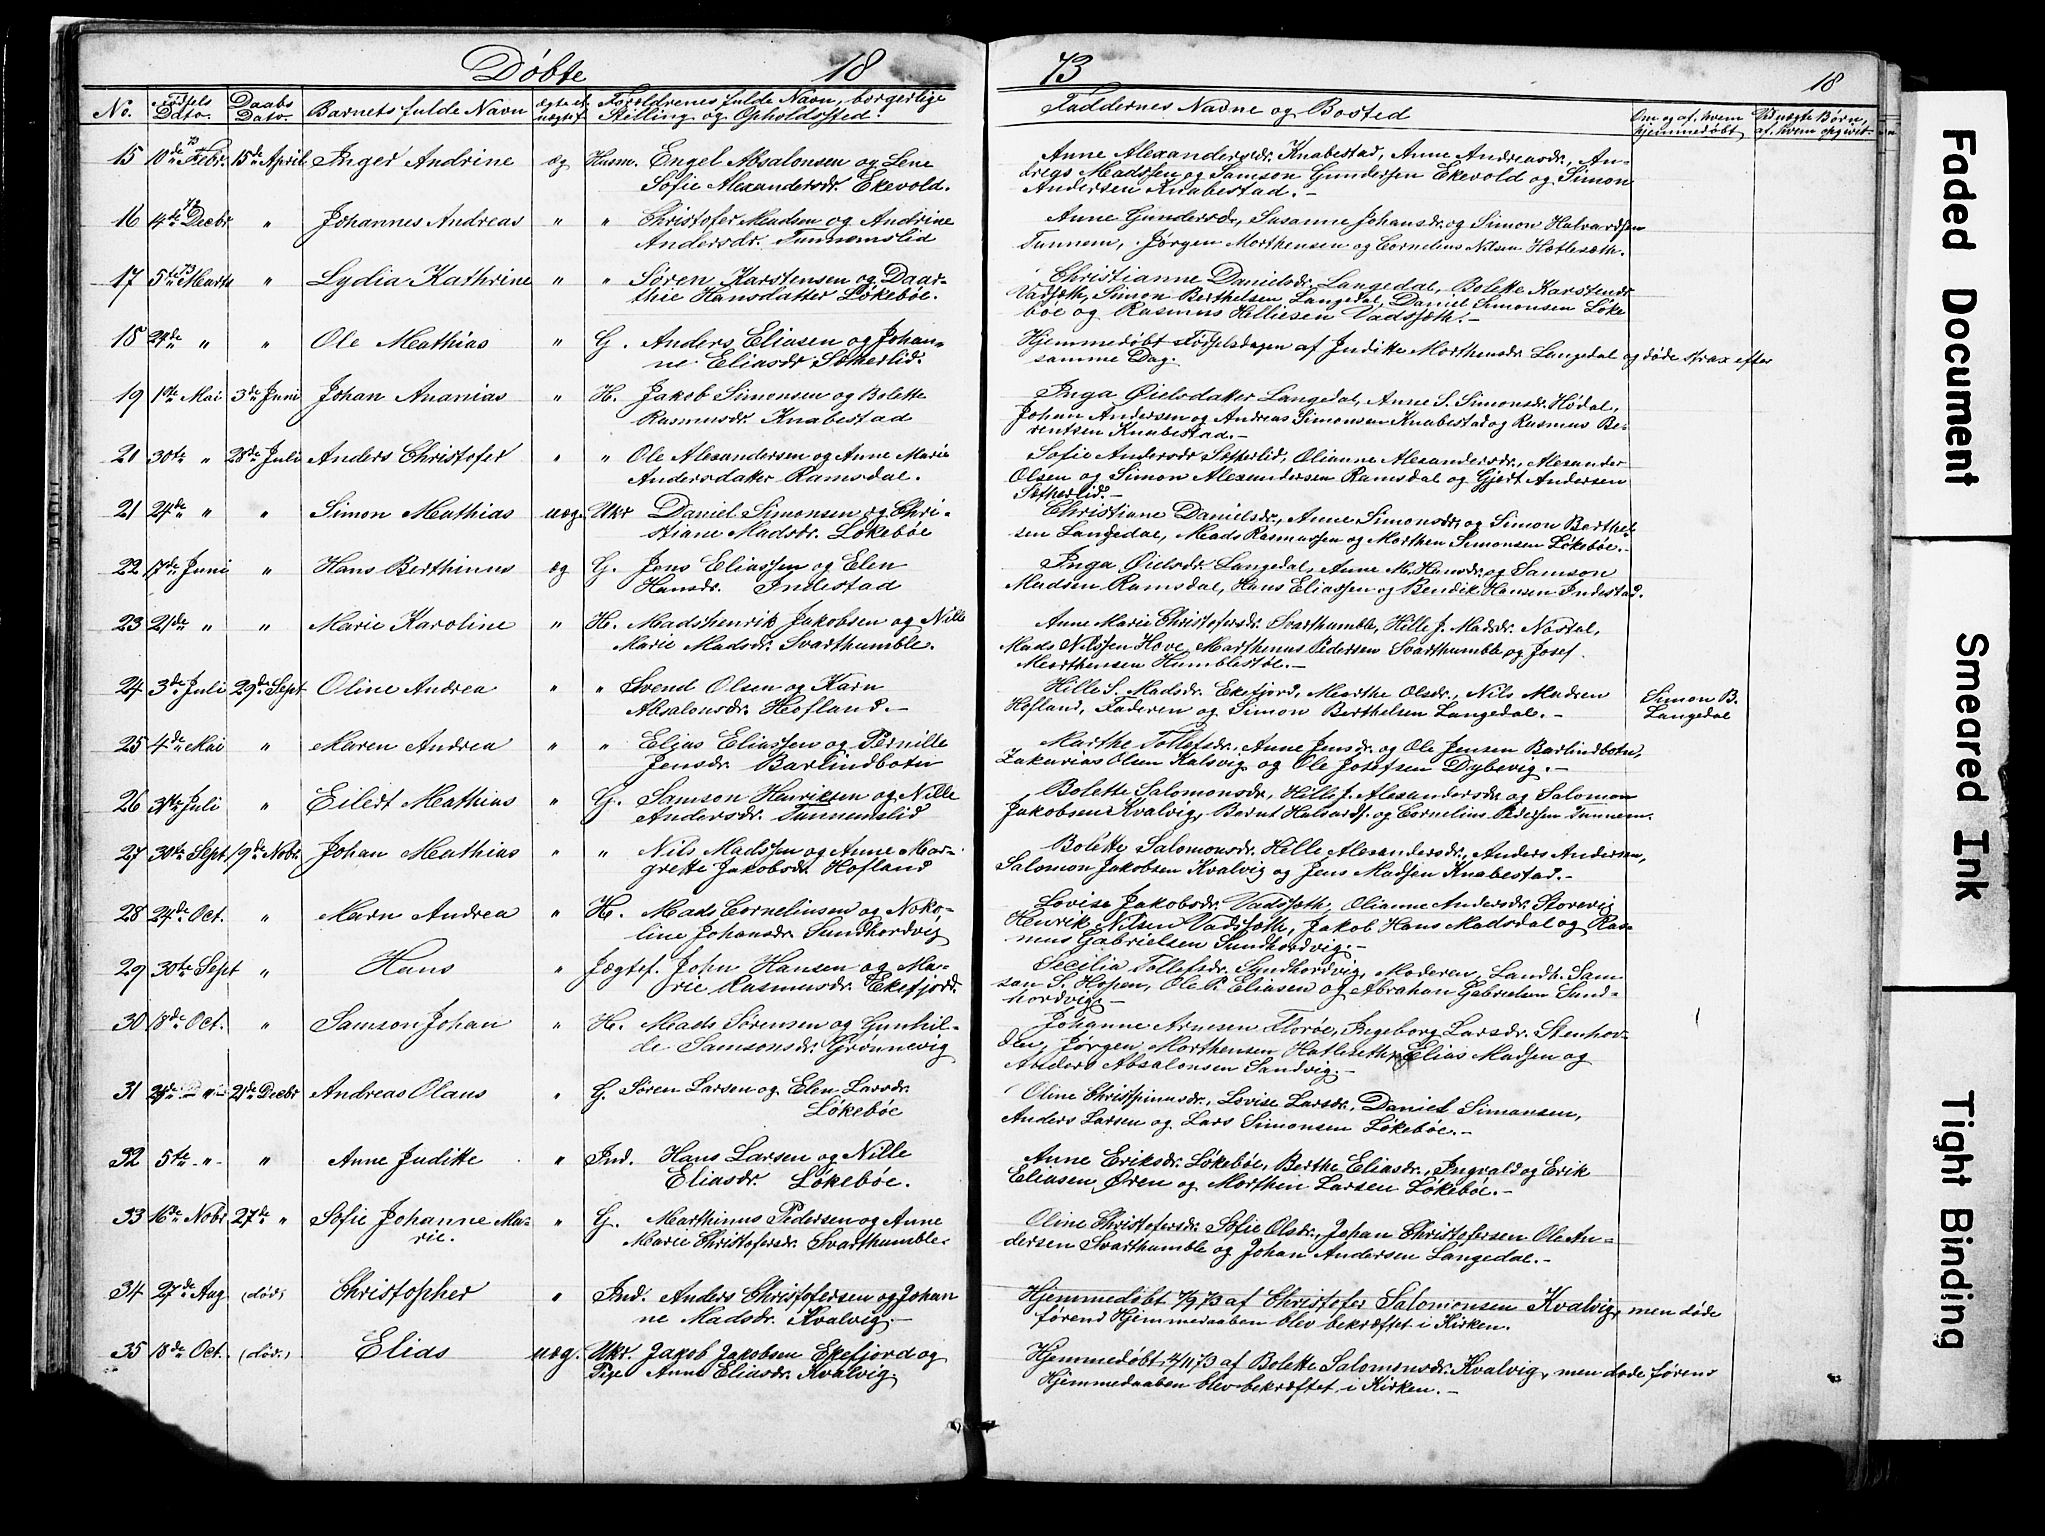 Døbte 18
No. Fødsels Dato. Daabs Dato. Barnets fulde Navn ægte el. uægte Forældrenes fulde Navn, borgerlige Stilling og Opholdssted.
15 10de Febr. 15de April Inger Andrine æg Husm. Engel Absalonsen og Lene
Sofie Alexandersdr. Ekevold.
16 4de Decbr " Johannes Andreas " " Christofer Madsen og Andrine
Andersdr. Tunnemslid
17 5te Marts " Lydia Kathrine " " Søren Karstensen og Daar-
thie Hansdatter Løkebøe.
18 24de " " Ole Mathias " G. Anders Eliasen og Johan-
ne Eliasdr. Sætherlid.
19 1ste Mai 3de Juni Johan Ananias " H. Jakob Simonsen og Bolette
Rasmusdr. Knabestad
20 30te " 28de Juli Anders Christofer " " Ole Alexandersen og Anne Marie
Andersdatter Ramsdal.
21 24de " " Simon Mathias uæg. Ukr Daniel Simonsen og Chri-
stiane Madsdr. Løkebøe
22 17de Juni " Hans Berthinus æg G. Jens Eliassen og Elen
Hansdr. Indestad
23 21de " " Marie Karoline " H. Madshenrik Jakobsen og Nille
Marie Madsdr. Svarthumble.
24 3de Juli 29de Sept Oline Andrea " " Svend Olsen og Karn
Absalonsdr. Hofland.-
25 4de Mai " Maren Andrea " " Elias Eliassen og Pernille
Jensdr. Barlindbotn
26 31te Juli " Eilert Mathias " G. Samson Henriksen og Nille
Andersdr. Tunnemslid
27 30te Sept. 19de Nobr. Johan Mathias " " Nils Madssen og Anne Mar-
grette Jakobsdr. Hofland
28 24de Oct. " Marn Andrea " H. Mads Corneliusen og Noko-
line Johansdr. Sundhordvig
29 30te Sept " Hans " Jægtef. John Hansen og Ma-
rie Rasmusdr. Ekefjord.
30 18de Oct. " Samson Johan " H. Mads Sørensen og Gunhil-
de Samsonsdr. Grønnevig
31 24de " 21de Decbr Andreas Olaus " G. Søren Larsen og Elen Larsdr.
Løkebøe
32 5te " " Anne Juditte " Ind. Hans Larsen og Nille
Eliasdr. Løkebøe.
33 16de Nobr. 27de " Sofie Johanne Ma- " G. Marthinus Pedersen og Anne
rie. Marie Christofersdr. Svarthumble.
34 27de Aug. (død,) Christopher " Ind. Anders Christofersen og Johan
ne Madsdr. Kvalvig.-
35 18de Oct. (død.) Elias uæg. Ukr. Jakob Jakobsen Ekefjord og
Pige Anne Eliasdr. Kvalvig.
73
18
Faddernes Navne og Bosted Om og af hvem hjemmedøbt Ved uægte Børn, af hvem opgivet
Anne Alexandersdr. Knabestad, Anne Andreasdr., An-
dreas Madssen og Samson Gundersen Ekevold og Simon
Andersen Knabestad.-
Anne Gundersdr., Susanne Johansdr. og Simon Halvardsen
Tunnem, Jørgen Morthensen og Cornelius Nilsen Hatlesæth.
Christianne Danielsdr. Langedal, Bolette Karstensdr
Vadsæth, Simon Berthelsen Langedal, Daniel Simonsen Løke
bøe og Rasmus Helliesen Vadsæth.-
Hjemmedøbt Fødselsdagen af Juditte Morthensdr. Langedal og døde strax efter
samme Dag.
Inga Øielsdatter Langedal, Anne S. Simonsdr. Hødal,
Johan Andersen og Andreas Simonsen Knabestad og Rasmus Be-
rentsen Knabestad.-
Sofie Andersdr Sætherlid, Olianne Alexandersdr., Alexander
Olsen og Simon Alexandersen Ramsdal og Gjert Andersen
Sætherlid.-
Christiane Danielsdr., Anne Simonsdr. og Simon Berthel-
sen Langedal, Mads Rasmussen og Morthen Simonsen Løkebøe.-
Inga Øielsdr. Langedal, Anne M. Hansdr. og Samson
Madsen Ramsdal, Hans Eliassen og Bendik Hansen Indestad.
Anne Marie Christofersdr. Svarthumble, Hille J. Madsdr. Nosdal,
Mads Nilssen Hove, Marthenus Pedersen Svarthumble og Josef
Morthensen Humblestøe.-
Hille S. Madsdr. Ekefjord, Marthe Olsdr., Nils Madsen Simon B.
Hofland, Faderen og Simon Berthelsen Langedal.- Langedal
Marthe Tollefsdr., Anne Jensdr. og Ole Jensen Barlindbotn,
Zakarias Olsen Kalsvig og Ole Josefsen Dybevig.-
Bolette Salomonsdr., Hille J. Alexandersdr. og Salomon
Jakobsen Kvalvig, Bernt Halvards. og Cornelius Pedersen Tunnem.
Bolette Salomonsdr. Hille Alexandersdr., Anders Andersen,
Salomon Jakobsen Kvalvig og Jens Madsen Knabestad.-
Lovise Jakobsdr. Vadsæth, Olianne Andersdr. Storevig
Henrik Nilsen Vadsæth, Jakob Hans. Madsdal og Ras-
mus Gabrielsen Sundhordvig.-
Secilia Tollefsdr. Sundhordvig, Moderen, Landh. Sam
son S. Hopen, Ole P. Eliasen og Abrahan Gabrielsen Sund-
hordvig.-
Johanne Arnesen Florøe, Ingeborg Larsdr. Stenhov-
den, Jørgen Morthensen Hatlesæth, Elias Madsen og
Anders Absalonsen Sandvig.-
Oline Christpinusdr., Lovise Larsdr., Daniel Simonsen,
Anders Larsen og Lars Simonsen Løkebøe.-
Anne Eriksdr. Løkebøe, Berthe Eliasdr., Ingvald og Erik
Eliasen Øren og Morthen Larsen Løkebøe.-
Oline Christofersdr. Sofie Olsdr., Johan Christofersen Ole An-
dersen Svarthumble og Johan Andersen Langedal.-
Hjemmedøbt 7/9 73 af Christofer Salomonsen Kvalvig, men døde
førend Hjemmedaaben blev bekræftet i Kirken.
Hjemmedøbt 2/11 73 af Bolette Salomonsdr. Kvalvig, men døde førend
Hjemmedaaben blev bekræftet i Kirken.-
Faded Document
Smeared Ink
Tight Binding